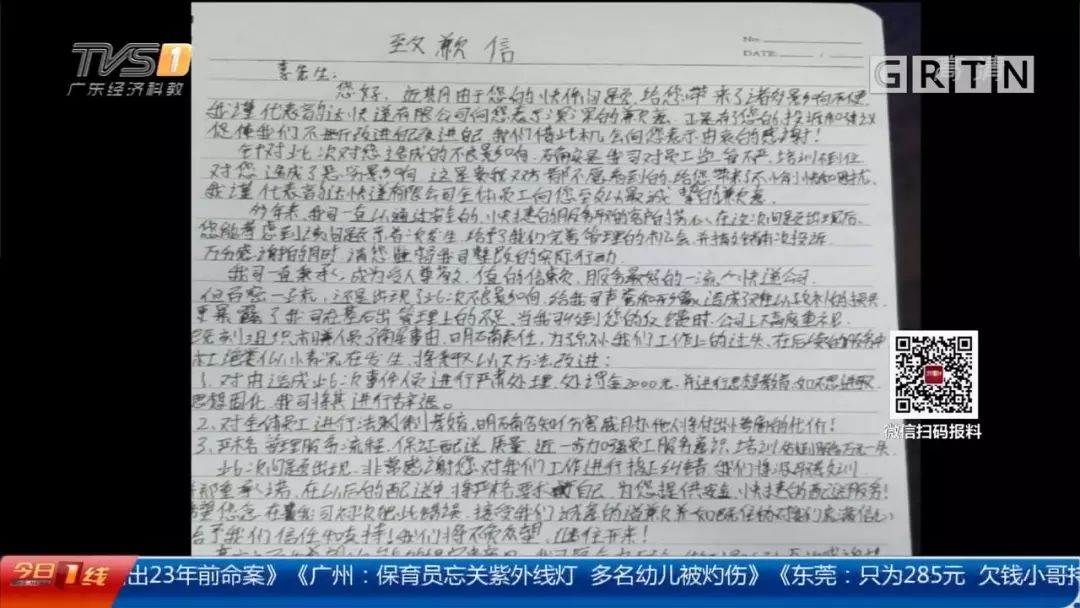 TVS1
广东经济科教
GRTN
No.
DATE
致歉信
李先生:
您好,近期由于您的快件问题,给您带来了诸多影响和不便
我谨代表首达快递有限公司向您表示深深的歉意,正是有了您的投诉和建议
促使我们不断改进自己,我们借此机会向您表示由衷的感谢!
针对此次对您造成的不良影响,确实是我司对员工监管不严,培训不到位
对您造成了恶劣影响,这是我双方都不愿看到的,给您带来了不愉快和困扰,
我谨代表首达快递有限公司全体员工向您致以最诚挚的歉意。
我司一直以通过安全的、快捷的服务 客户的 心,在这次问题出现后,
您能考虑到该问题 首次发生,给予了我们完善管理的机会,并 本次投诉
万分感谢 的同时,请您监督我司整改的实际行动。
我司一直秉承,成为受人尊敬,值的信赖,服务最好的一流快递公司
但百密一疏,还是出现了此次不良影响,给我司声誉和形象造成了难以弥补的损失
更暴露了我司在售后管理上的不足,当我司收到您的反馈时,公司上下高度重视
立 组织 人员了解事由,明确责任,为了弥补我们工作上的过失,在后续的服务中
杜绝类似情况在发生,将采取以下方法改进:
1、对由造成此次事件人员进行严肃处理,处罚金2000元,并进行思想教育,如不思进取
思想固化,我司将其进行辞退。
2、对全体员工进行法制教育,明确告知伤害 他人将付出 的代价!
3、严格管理服务流程,保证配送质量,近一步加强员工服务意识,培训
此次问题出现,非常感谢您对我们工作进行指正纠错,我们将
郑重承诺,在以后的配送中将严格要求自己,为您提供安全、快捷的配送服务!
望您念在我司初次犯此错误,接受我们诚恳的道歉并如既往的对我们充满信心
给予我们信任和支持!我们将不负众望,继往开来!
微信扫码报料
今日1线
出23年前命案》《广州:保育员忘关紫外线灯 多名幼儿被灼伤》《东莞:只为285元 欠钱小哥持